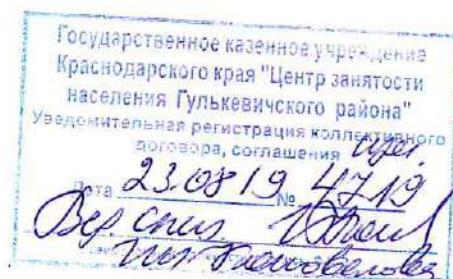 Государственное казенное учреждение
Краснодарского края "Центр занятости
населения Гулькевичского района"
Уведомительная регистрация коллективного
договора, соглашения
Дата 23.08.19 № 47.19
Вед. спец.